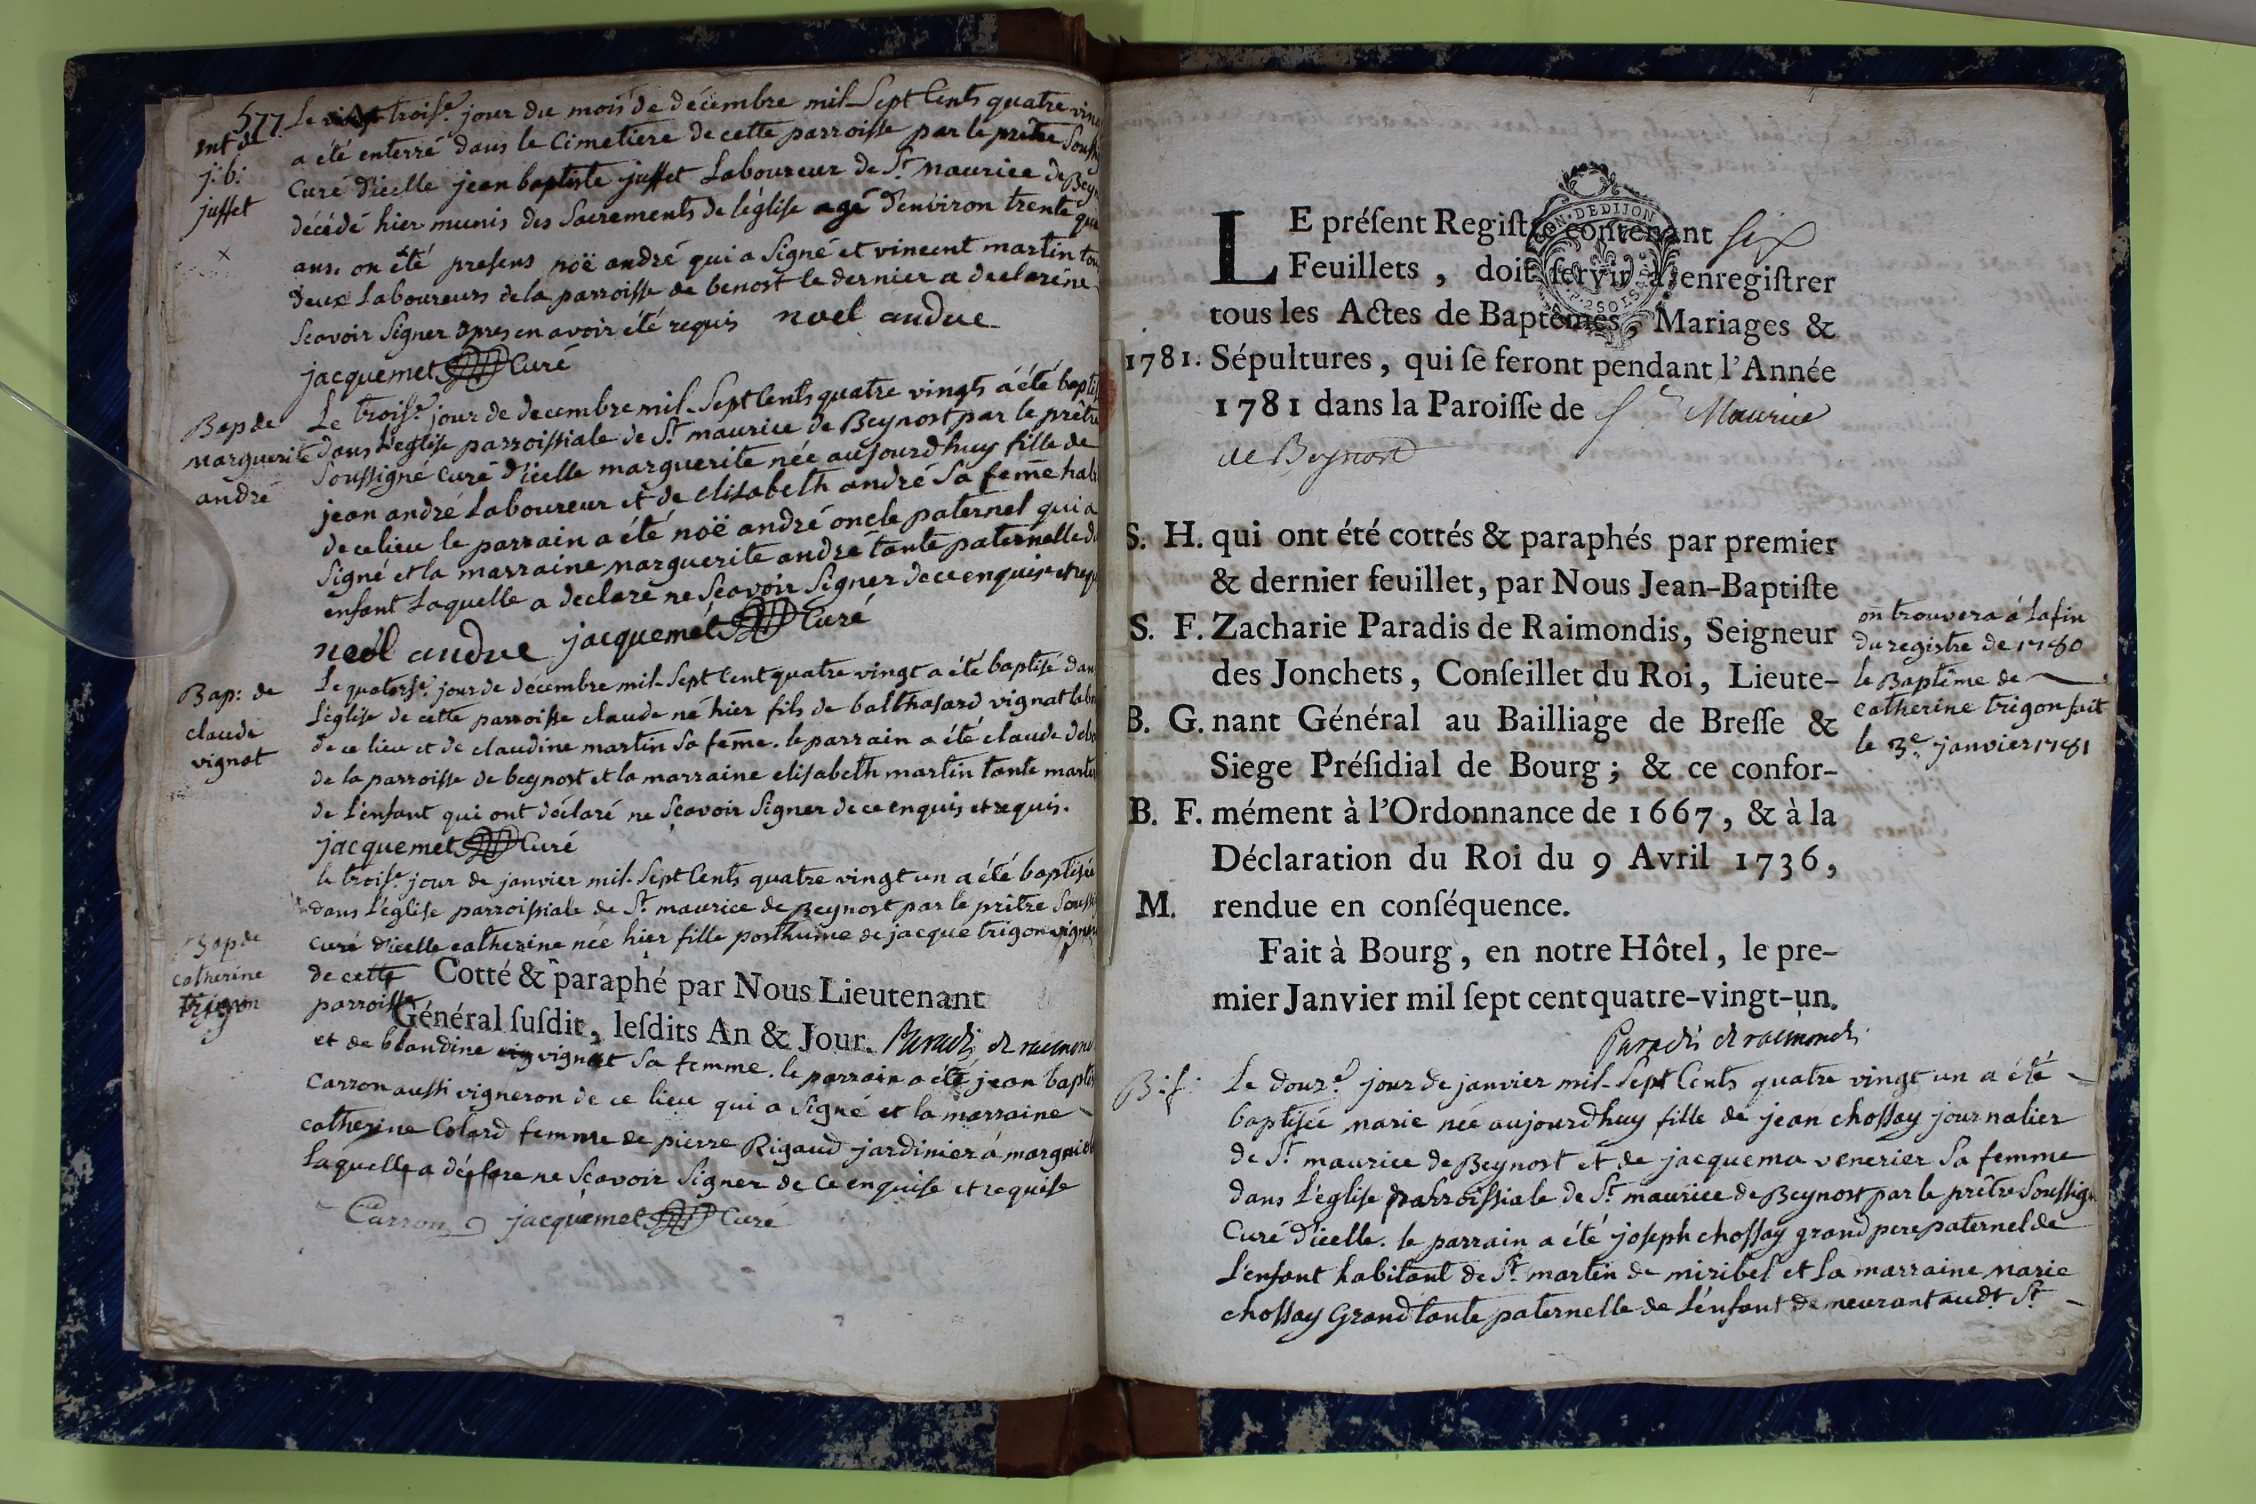 577
Ent de
j: b:
juffet
Le troise. jour du mois de décembre mil-Sept Cents quatre
a été enterré dans le Cimetiere de cette parroisse par le prêtre
Curé d'icelle jean baptiste juffet Laboureur de St. maurice de
décédé hier munis des Sacrements de l'église agé d'environ trente
ans. on été presens noë andré qui a Signé et vincent martin
deux Laboureurs de la parroisse de benost le dernier a declaré ne
Scavoir Signer apres en avoir été requis noel andre
jacquemet Curé
Bap de
Marguerite
andré
Le troise. jour de decembre mil-Sept Cents quatre vingts à été
dans L'eglise parroissiale de St. maurice de Beynost par le prêtre
Soussigné Curé d'icelle marguerite née aujourd'huy fille de
jean andré Laboureur et de elisabeth andré Sa feme
de ce lieu le parrain a été noë andré oncle paternel qui a
Signé et la marraine marguerite andré tante paternelle
enfant Laquelle a declaré ne Scavoir Signer de ce enquise et
noël andre jacquemet Curé
Bap: de
claude
vignat
Le quatorse. jour de décembre mil-Sept Cent quatre vingt a été baptisé
L'église de cette parroisse claude né hier fils de balthasard vignat
de ce lieu et de claudine martin Sa feme. le parrain a été claude
de la parroisse de beynost et la marraine elisabeth martin tante
de L'enfant qui ont déclaré ne Sçavoir Signer de ce enquis et requis.
jacquemet Curé
Bap de
catherine
trigon
le troise. jour de janvier mil-Sept Cents quatre vingt un a été baptisée
dans L'église parroissiale de St. maurice de Beynost par le prêtre
Curé d'icelle catherine née hier fille posthume de jacque trigon
de cette
parroisse
Cotté & paraphé par Nous Lieutenant
Général ſuſdit, leſdits An & Jour. Paradis de
et de blandine vignat Sa femme. le parrain a été jean
Carron aussi vigneron de ce lieu qui a Signé et la marraine
catherine Colard femme de pierre Rigaud jardinier à
Laquelle a déclare ne Scavoir Signer de ce enquise et requise
Carron jacquemet Curé
LE préſent Regiſtre contenant six
Feuillets, doit ſervir à enregiſtrer
tous les Actes de Baptêmes, Mariages &
1781. Sépultures, qui ſe feront pendant l'Année
1781 dans la Paroiſſe de St Maurice
de Beynost
S. H. qui ont été cottés & paraphés par premier
& dernier feuillet, par Nous Jean-Baptiſte
S. F. Zacharie Paradis de Raimondis, Seigneur
des Jonchets, Conſeillet du Roi, Lieute-
B. G. nant Général au Bailliage de Breſſe &
Siege Préſidial de Bourg; & ce confor-
B. F. mément à l'Ordonnance de 1667, & à la
Déclaration du Roi du 9 Avril 1736,
M. rendue en conſéquence.
Fait à Bourg, en notre Hôtel, le pre-
mier Janvier mil ſept cent quatre-vingt-un.
Paradis de raimondis
on trouvera à Lafin
du registre de 1780
le Baptême de
catherine trigon fait
le 3e. janvier 1781
B: f:
Le douze. jour de janvier mil-Sept Cents quatre vingt un a été
baptisée marie née aujourd'huy fille de jean chossay journalier
de St. maurice de Beynost et de jacquema venerier Sa femme
dans L'eglise parroissiale de St. maurice de Beynost par le prêtre
Curé d'icelle. le parrain a été joseph chossay grand pere paternel de
L'enfant habitant de St. martin de miribel et La marraine marie
chossay Grand tante paternelle de L'enfant demeurant audt. St.